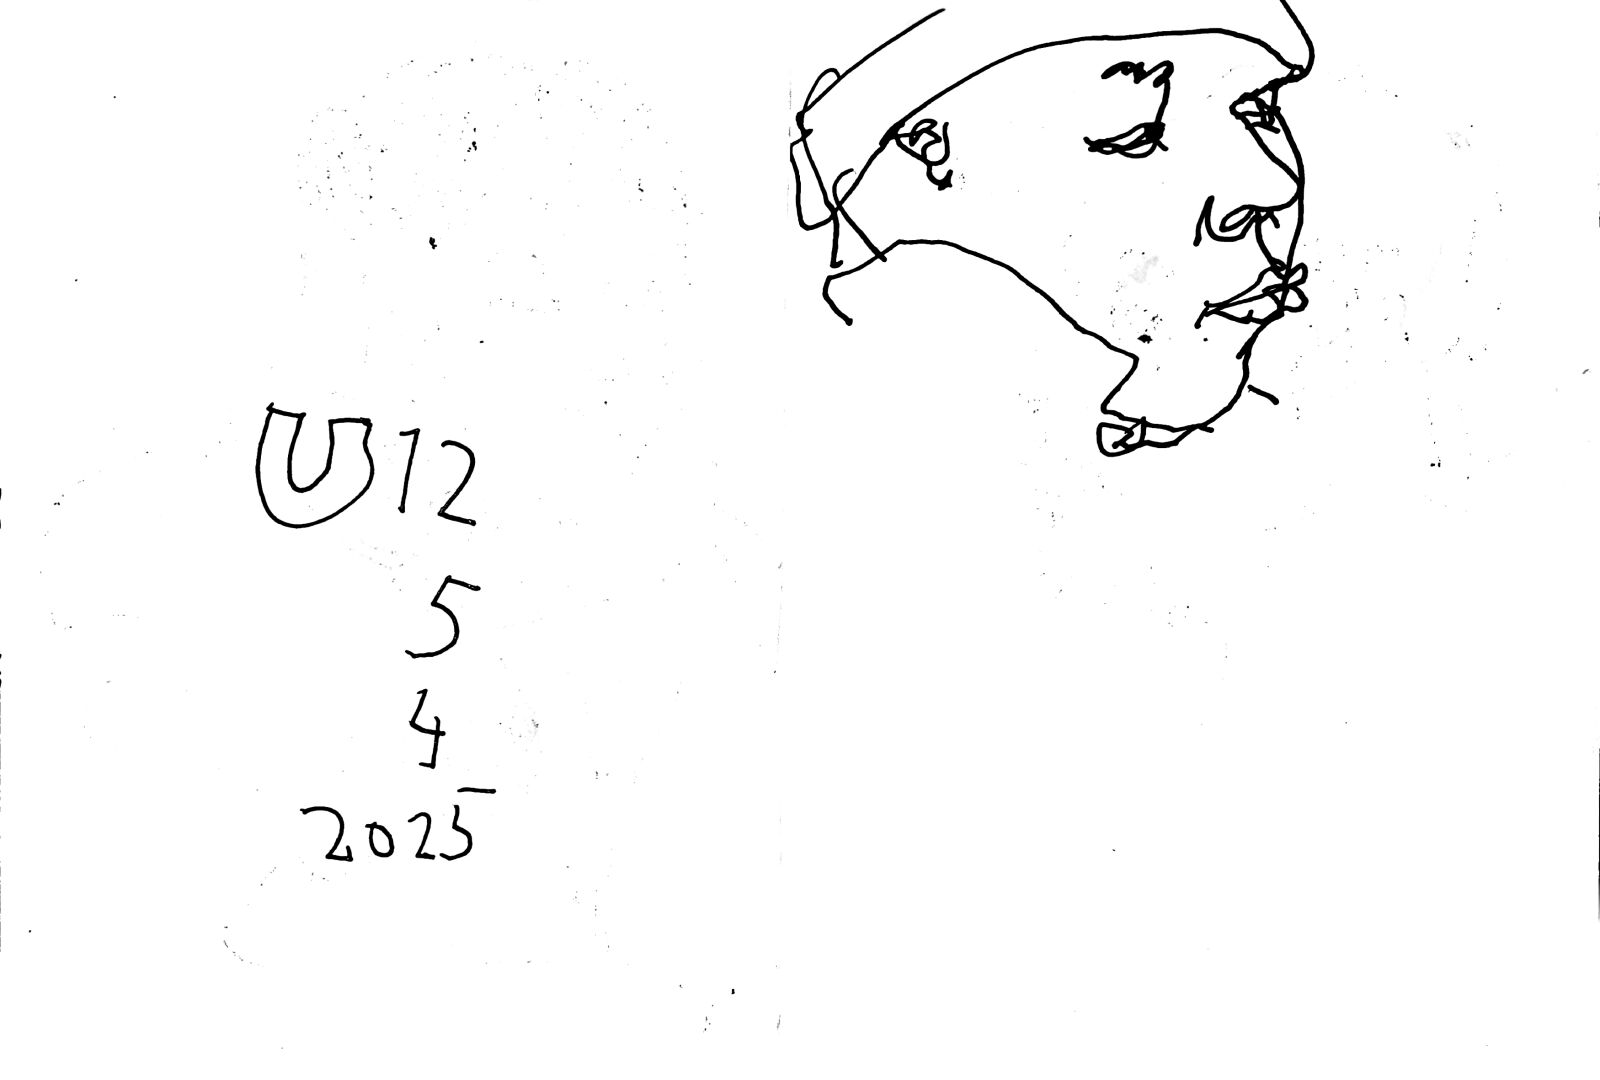 U12
5
4
2025